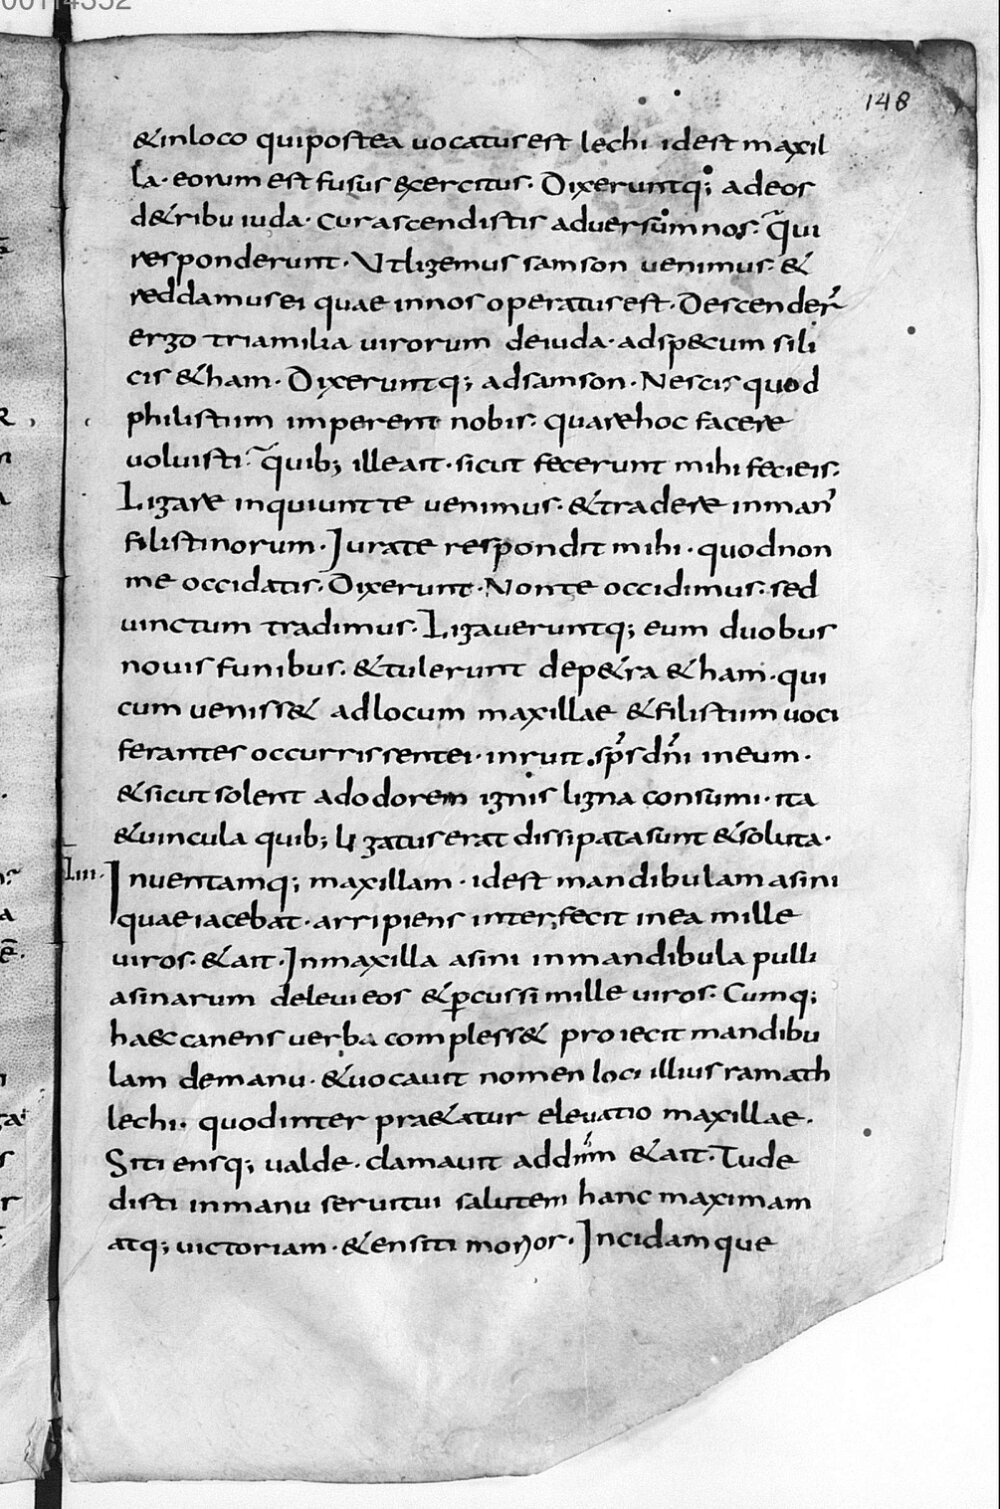 00114352
148
& inloco qui postea uocatus est lechi idest maxil
la· eorum est fusus exercitus· Dixeruntq; adeos
de tribu iuda· cur ascendistis aduersum nos· Qui
responderunt· Vt ligemus samson uenimus· &
reddamus ei quae innos operatus est· Descender̄
ergo tria milia uirorum deiuda· adspecum sili
cis & ham· Dixeruntq; adsamson· Nescis quod
philistiim imperent nobis· quare hoc facere
uoluisti· quib; ille ait· sicut fecerunt mihi feci eis·
Ligare inquiunt te uenimus· & tradere inman'
filistinorum· Iurate respondit mihi· quodnon
me occidatis· Dixerunt· Non te occidimus· sed
uinctum tradimus· Ligaueruntq; eum duobus
nouis funibus· & tulerunt dep&ra & ham· qui
cum ueniss& adlocum maxillae & filistiim uoci
ferantes occurrissent ei· inruit sp̄s dn̄i ineum·
& sicut solent adodorem ignis ligna consumi· ita
& uincula quib; ligatus erat dissipata sunt & soluta·
Liii· Inuentamq; maxillam· idest mandibulam asini
quae iacebat· arripiens interfecit inea mille
uiros· & ait· Inmaxilla asini inmandibula pulli
asinarum deleui eos & p̱cussi mille uiros· Cumq;
haec canens uerba compless& proiecit mandibu
lam demanu· & uocauit nomen loci illius ramath
lechi· quodinter pra&atur eleuatio maxillae·
Sitiensq; ualde· clamauit addn̄m & ait· Tu de
disti inmanu serui tui salutem hanc maximam
atq; uictoriam· & en siti morior· Incidamque